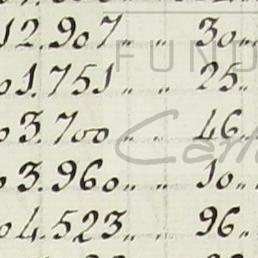 12.907 „ „ 30 „
01.751 „ „ 25 „
03.700 „ „ 46 „
03.960 „ „ 10 „
04.523 „ „ 96 „
FUND